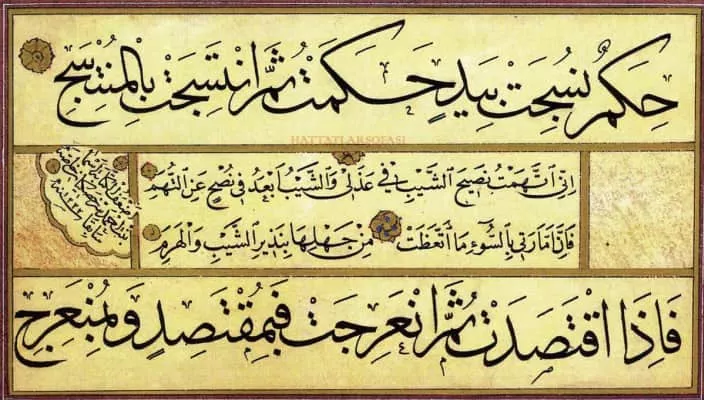 حِكَمٌ نُسِجَتْ بِيَدٍ حَكَمَتْ ثُمَّ انْتَسَجَتْ بِالْمُنْتَسِجِ
HATTATLARSOFASI
اِنِّى اتَّهَمْتُ نَصِيحَ الشَّيْبِ فِى عَذَلِى وَالشَّيْبُ اَبْعَدُ فِى نُصْحٍ عَنِ التُّهَمِ
فَاِنَّ اَمَّارَتِى بِالسُّوءِ مَا اتَّعَظَتْ مِنْ جَهْلِهَا بِنَذِيرِ الشَّيْبِ وَالْهَرَمِ
فَاِذَا اقْتَصَدَتْ ثُمَّ انْعَرَجَتْ فَبِمُقْتَصِدٍ وَبِمُنْعَرِجِ